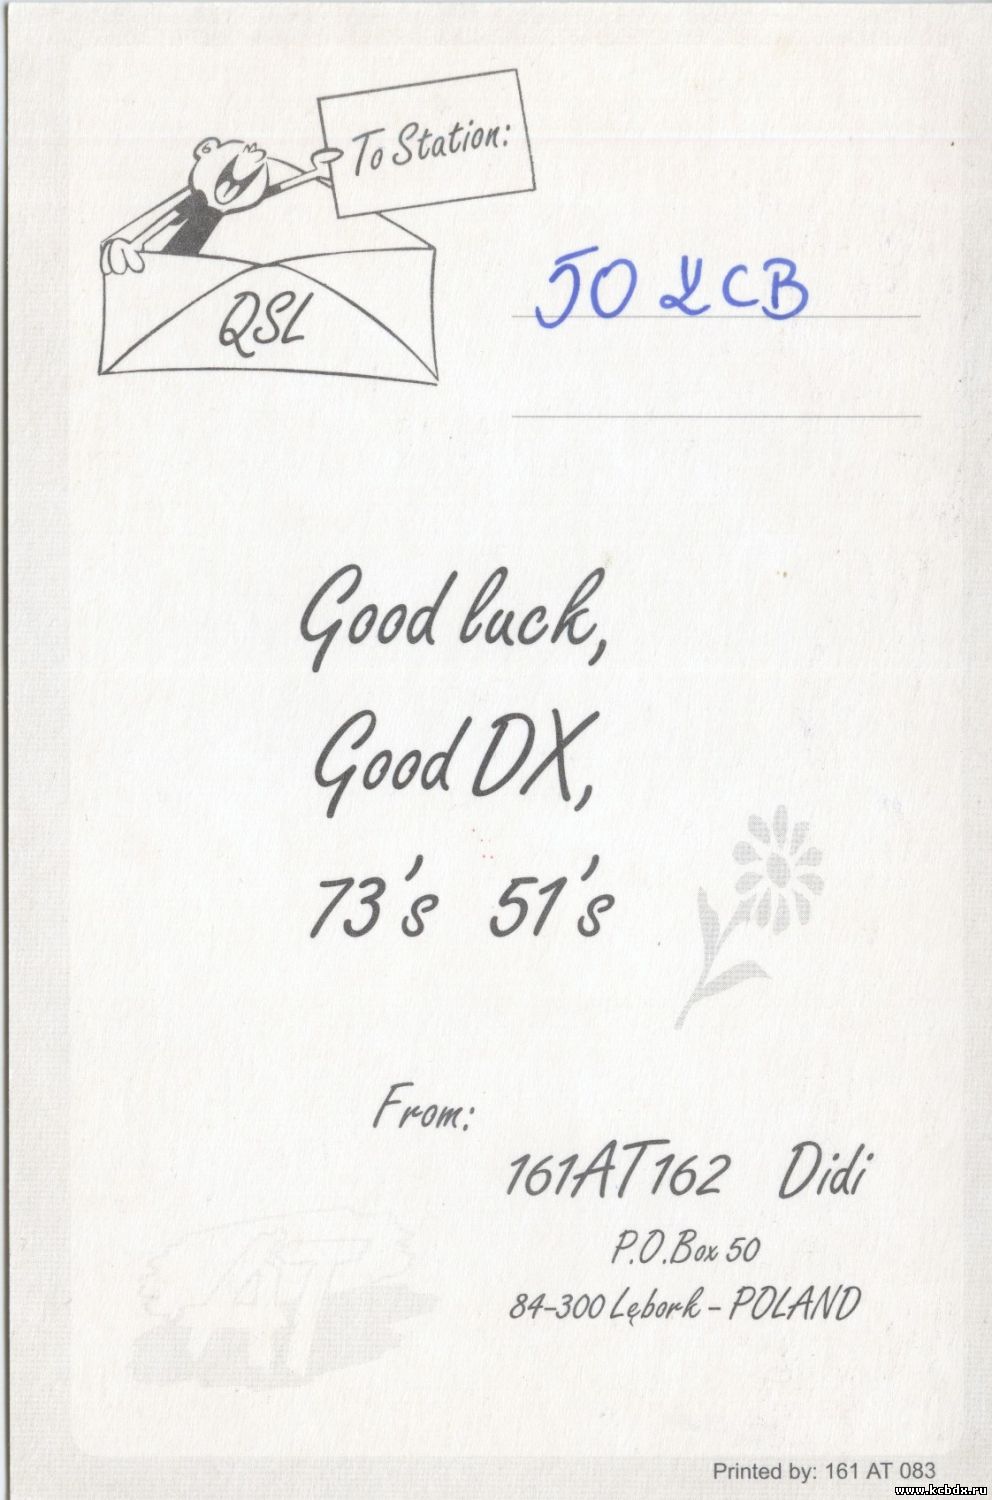 To Station:
QSL
50 LCB
Good luck,
Good DX,
73's 51's
From:
161AT162 Didi
P.O.Box 50
84-300 Lębork - POLAND
AT
Printed by: 161 AT 083
www.kcbdx.ru